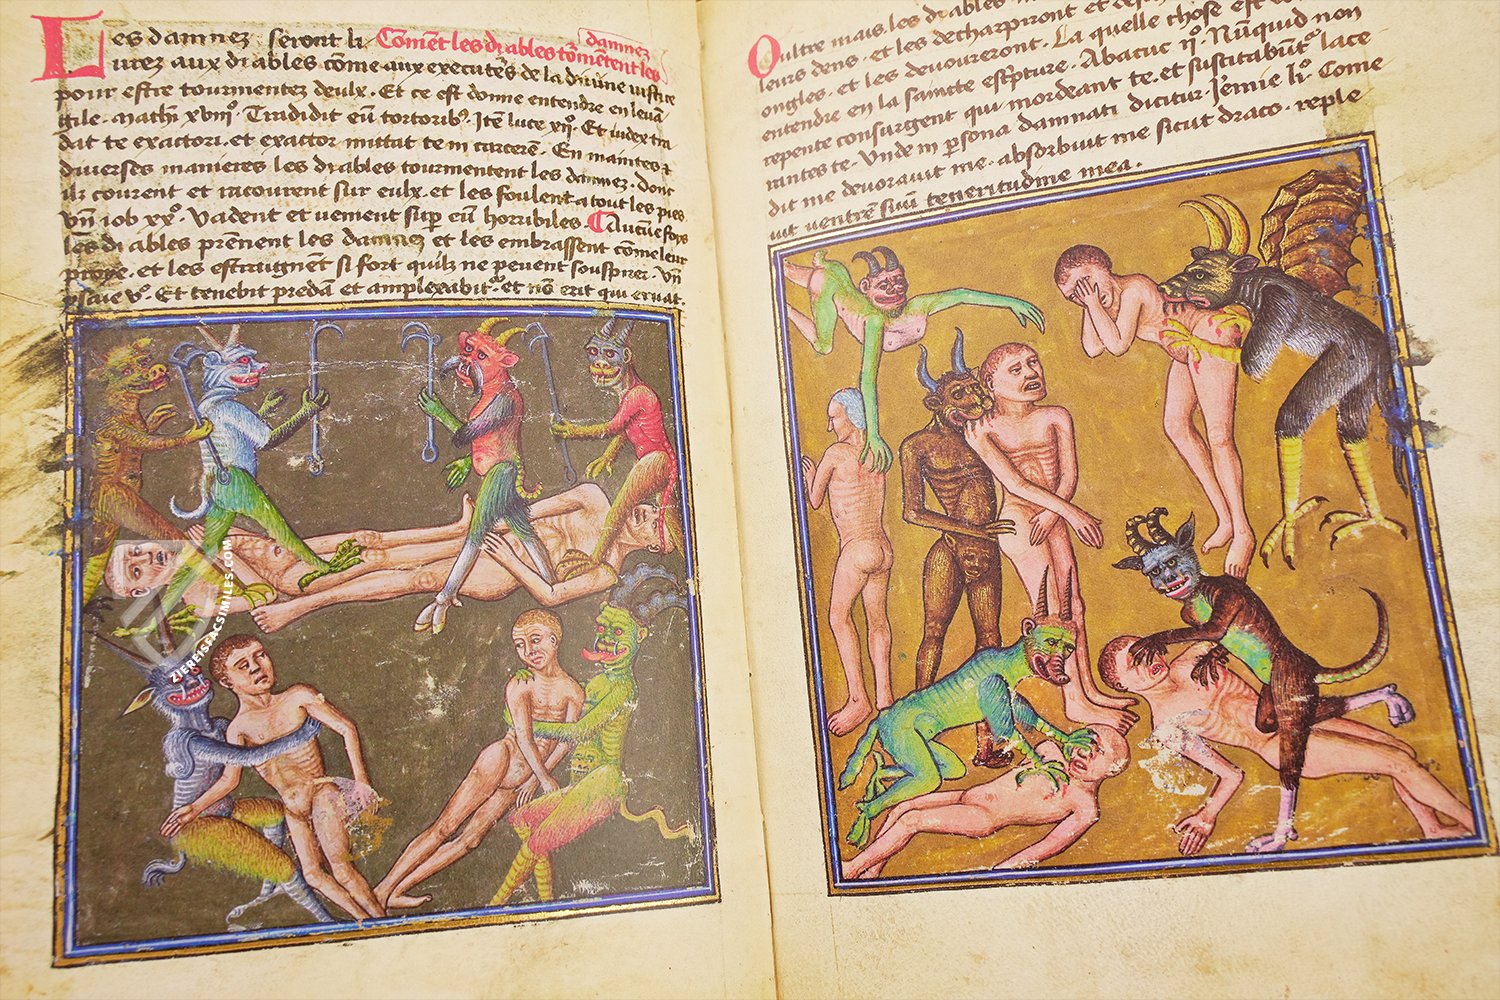 Les damnez seront li Cōmēt les diables tormētent les damnez
urez aux diables cōme aux executēs de la divine iustice
pour estre tourmentez deulx. Et ce est dōne entendre en leuā
gile. mathī xviiiº. Tradidit eū tortoribꝰ. Itē luce xiiº. Et iudex tra
dat te exactori. et exactor mittat te in carcerē. En maintes ⁊
diuerses manieres les diables tourmentent les damnez. donc
ilz courent et racourent sur eulx. et les foulent a tout les pies
Vnʳ iob xxº. Vadent et uenient sup eū horribiles. Aucūe foys
les diables prēnent les damnez et les embrassent cōme leur
proye. et les estraignēt si fort quilz ne peuent souspirer. Vnʳ
ysaie vº. Et tenebit predā et amplexabitʳ. et nō erit qui eruat.
Oultre mais les diables
leurs dens. et les decharpiront et
ongles. et les devoureront. La quelle chose est
entendre en la saincte escʳpture. Abacuc iiº. Nūquid non
repente consurgent qui mordeant te. et suscitabūtʳ lace
rantes te. Vnde in psona damnati dicitur Jemie li. Come
dit me devoravit me. absorbuit me sicut draco. reple
uit ventrē suū teneritudine mea.
ZIEREISFACSIMILES.COM